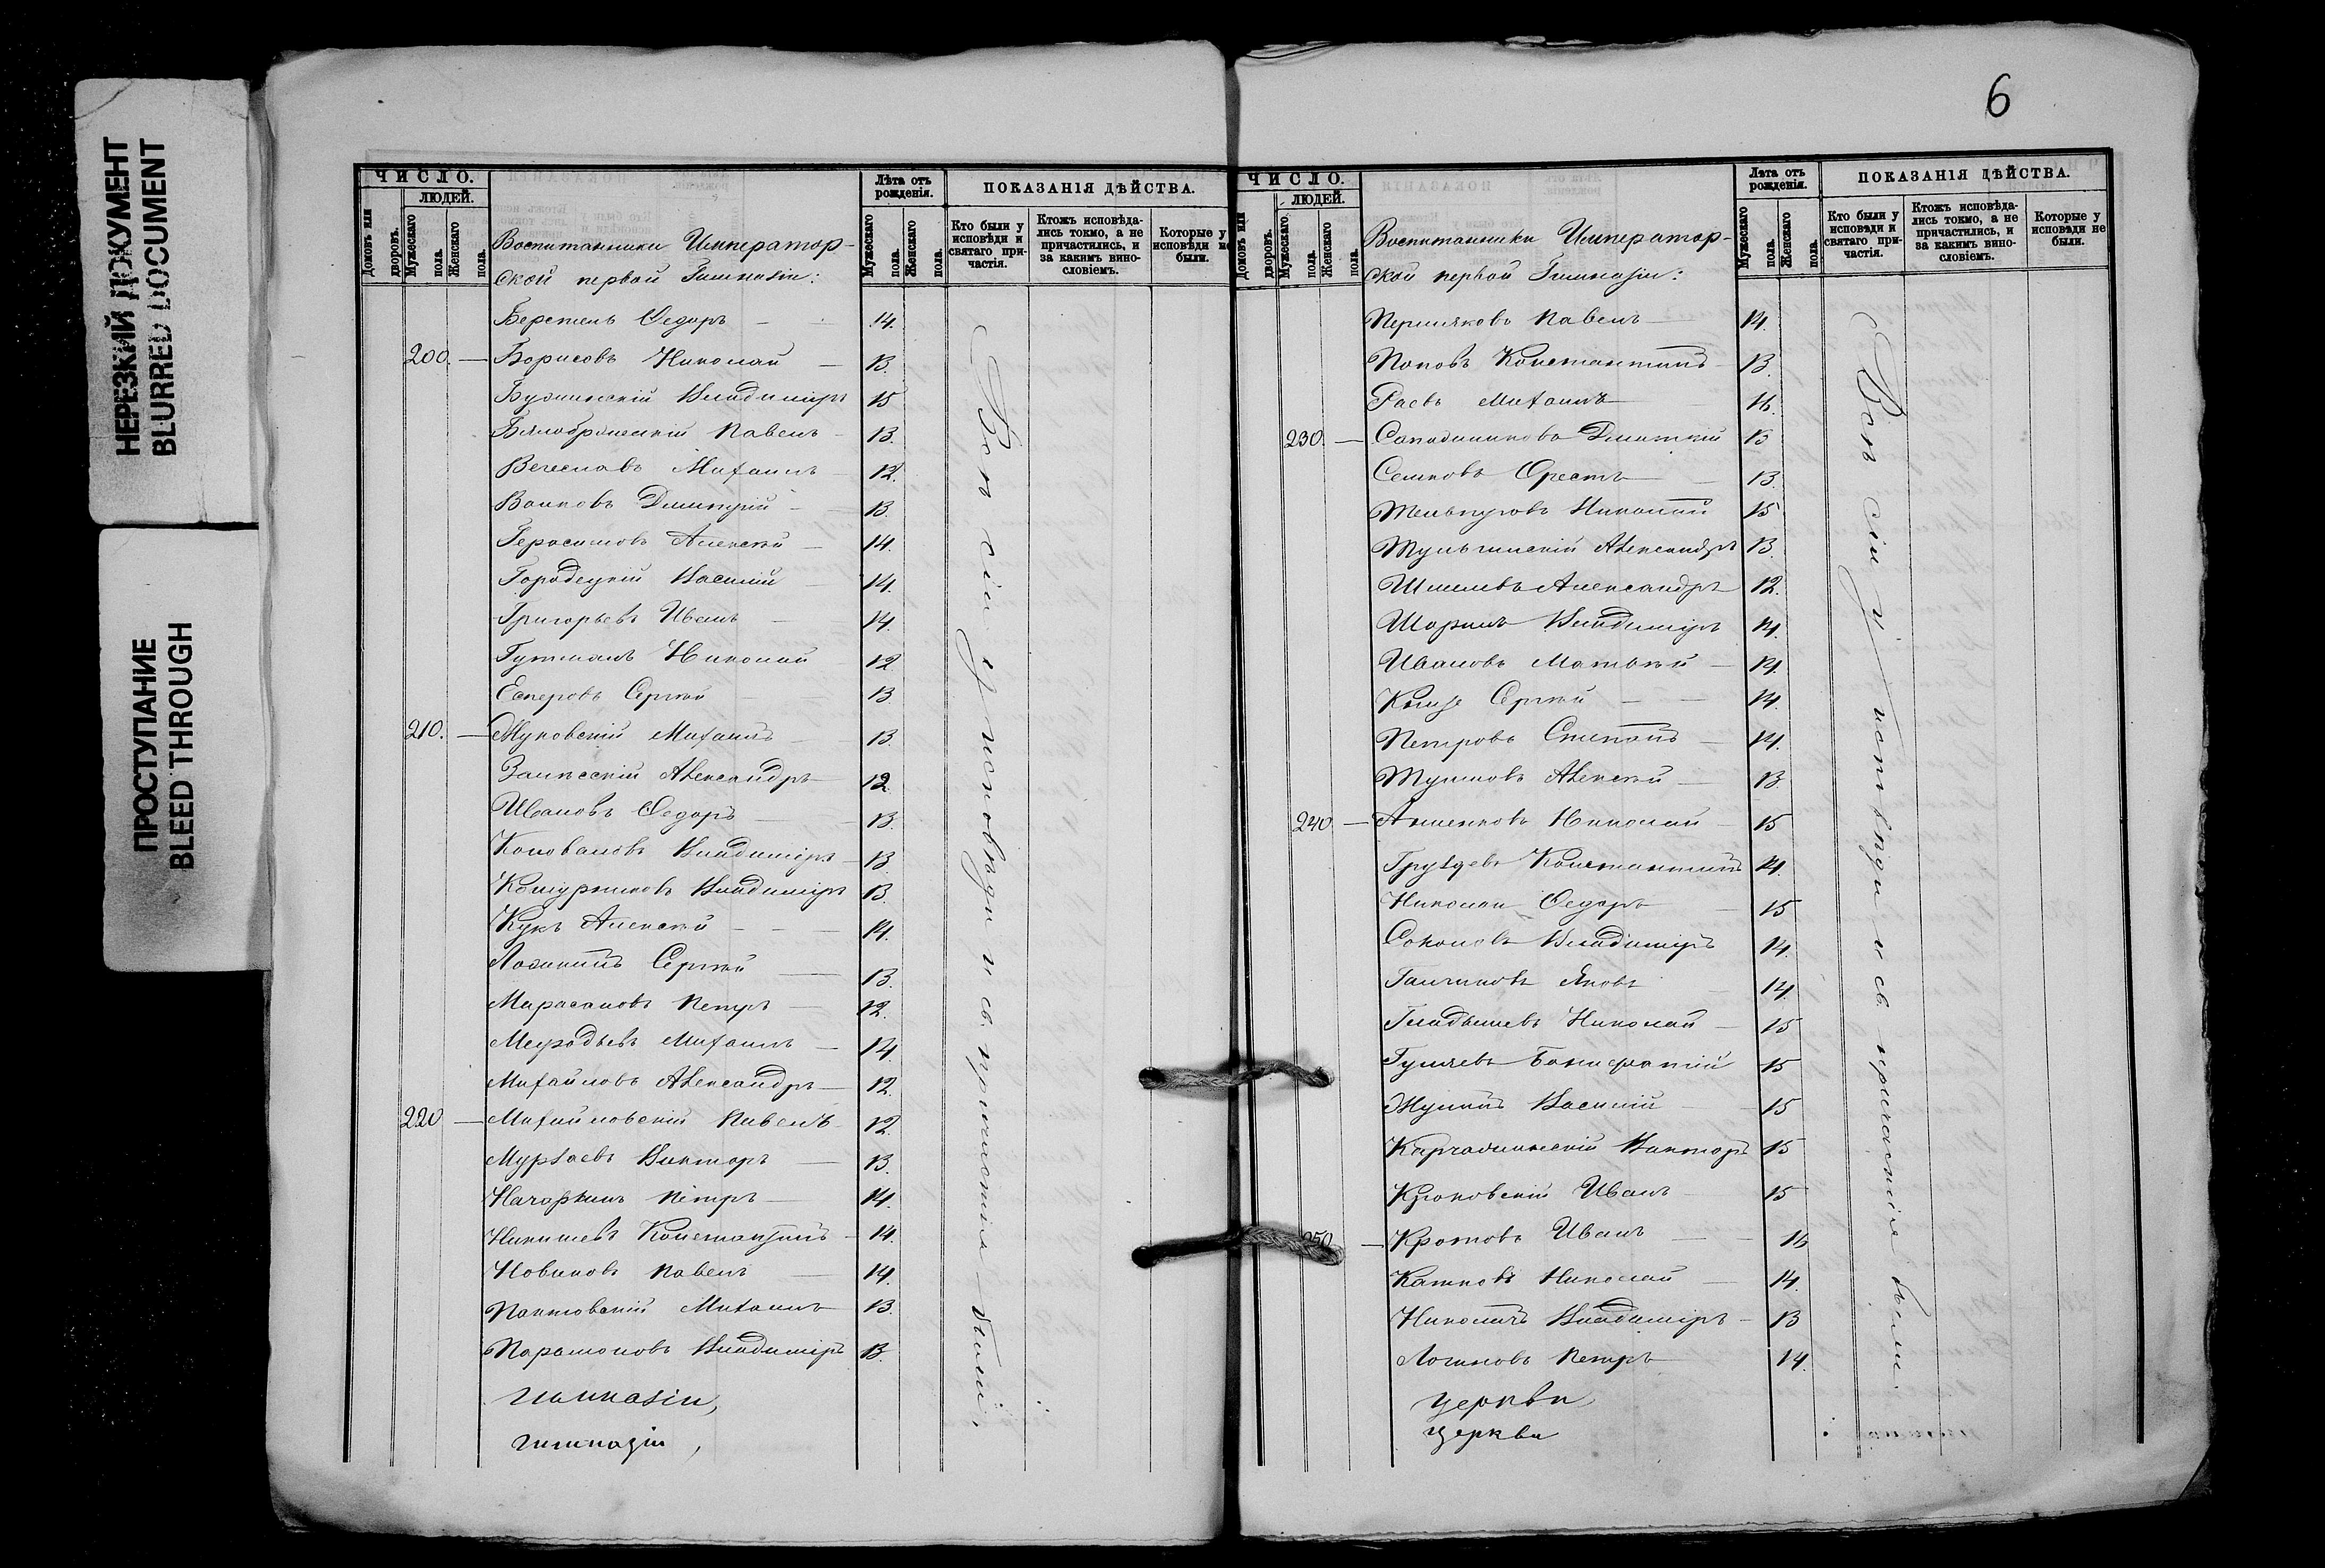 НЕРЕЗКИЙ ДОКУМЕНТ
BLURRED DOCUMENT
ПРОСТУПАНИЕ
BLEED THROUGH
ЧИСЛО.
ЛЮДЕЙ.
Домовъ или дворовъ.
Мужескаго пола.
Женскаго пола.
Воспитанники Император-
ской первой Гимназіи:
Лѣта отъ рожденія.
Мужескаго пола.
Женскаго пола.
ПОКАЗАНІЯ ДѢЙСТВА.
Кто были у исповѣди и святаго причастія.
Ктожъ исповѣда-лись токмо, а не причастились, и за какимъ вино-словіемъ.
Которые у исповѣди не были.
Ѳедоръ 14.
200. — Борисовъ Николай 13.
Владиміръ 15
Павелъ 13.
Вечесловъ Михаилъ 12.
Волковъ Димитрій 13.
Герасимовъ Алексѣй 14.
Городецкій Василій 14.
Григорьевъ Иванъ 14.
Гутманъ Николай 12.
Есперовъ Сергѣй 13
210. — Жуковскій Михаилъ 13.
Залѣсскій Александръ 12.
Ивановъ Ѳедоръ 13.
Коноваловъ Владиміръ 13.
Владиміръ 13.
Кукъ Алексѣй 14.
Сергѣй 13.
Петръ 12.
Михаилъ 14.
Михайловъ Александръ 12.
220 — Михайловскій Павелъ 12.
Мурзаевъ Викторъ 13.
Петръ 14.
Константинъ 14.
Новиковъ Павелъ 14.
Михаилъ 13.
Парамоновъ Владиміръ 13.
гимназіи,
гимназіи,
Всѣ сіи у исповѣди и св. причастія были.
6
ЧИСЛО.
ЛЮДЕЙ.
Домовъ или дворовъ.
Мужескаго пола.
Женскаго пола.
Воспитанники Император-
ской первой Гимназіи:
Лѣта отъ рожденія.
Мужескаго пола.
Женскаго пола.
ПОКАЗАНІЯ ДѢЙСТВА.
Кто были у исповѣди и святаго при-частія.
Ктожъ исповѣда-лись токмо, а не причастились, и за какимъ вино-словіемъ.
Которые у исповѣди не были.
Пермяковъ Павелъ 14.
Поповъ Константинъ 13.
Раевъ Михаилъ 16.
230. — Сапожниковъ Дмитрій 13
Семковъ Орестъ 13.
Николай 15
Александръ 13.
Александръ 12.
Шоринъ Владиміръ 14.
Ивановъ Матвѣй 14.
Сергѣй 14.
Петровъ Степанъ 14.
Алексѣй 13.
240 — Анненковъ Николай 15
Груздевъ Константинъ 14.
Николаи Ѳедоръ 15
Соколовъ Владиміръ 14.
Яковъ 14.
Гладышевъ Николай 15
Гуляевъ 15
Василій 15
Викторъ 15
Крюковскій Иванъ 15
250 — Кротовъ Иванъ 16
Катковъ Николай 14.
Владиміръ 13
Логиновъ Петръ 14.
церкви
церкви
Всѣ сіи у исповѣди и св. причастія были.